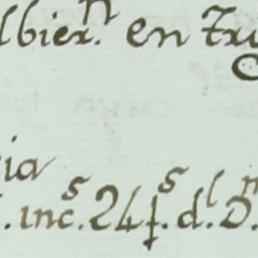 lbier.n en Tru
cia
. incs. 24 fs. dl D.m